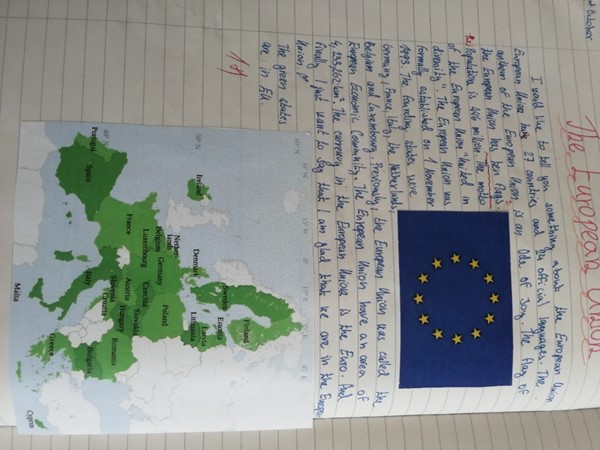 October
The European Union
I would like to tell you something about the European Union.
European Union has 27 countries and 24 official languages. The
anthem of the European Union is an Ode of Joy. The flag of
the European Union has ten flags.
Population is 446 million. The motto
of the European Union "United in
diversity". The European Union was
formally established on 1 November
1993. The founding states were
Germany, France, Italy, the Netherlands,
Belgium and Luxembourg. Previously, the European Union was called the
European Economic Community. The European Union have an area of
4,233,262 km². The currency in the European Union is the Euro. And
finally I just want to say that I am glad that we are in the Europe
Union
The green states
are in EU.
Finland
Sweden
Estonia
Latvia
Lithuania
Denmark
Ireland
Nether-
lands
Belgium
Luxembourg
Germany
Poland
Czechia
Slovakia
Austria
Hungary
Slovenia
Croatia
Romania
Bulgaria
France
Spain
Portugal
Italy
Greece
Malta
Cyprus